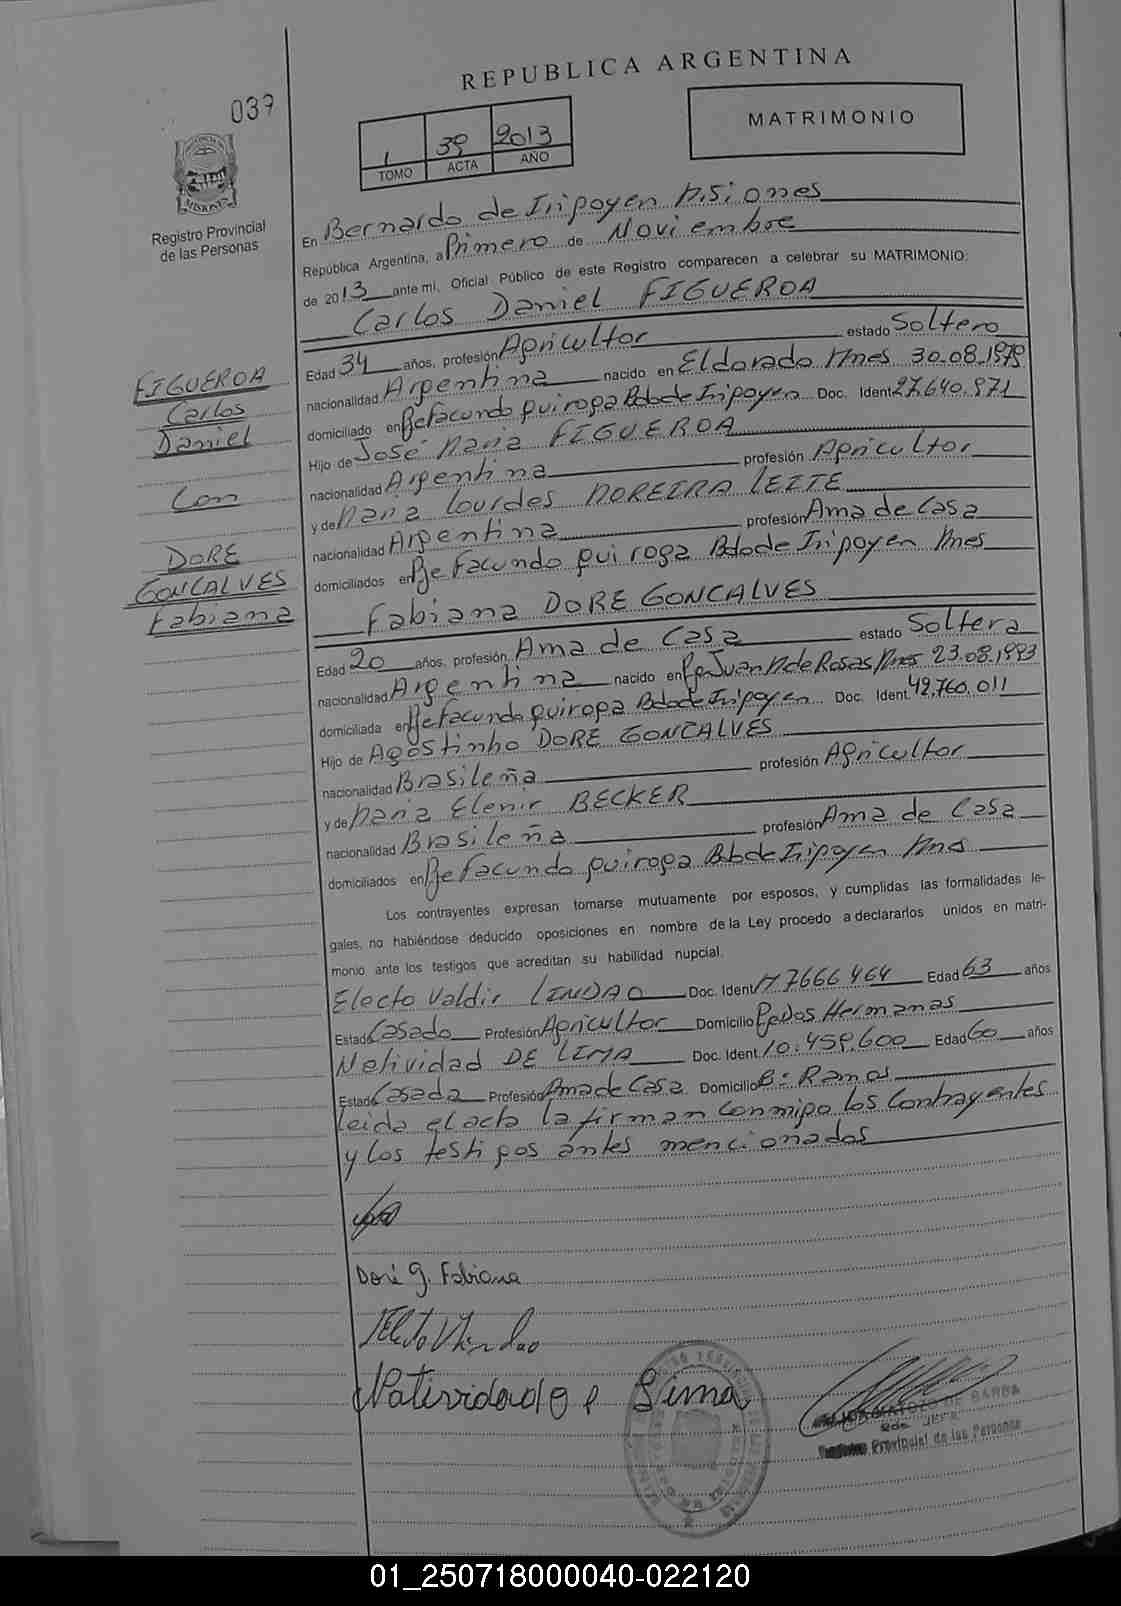 REPUBLICA ARGENTINA
039
1 39 2013
TOMO ACTA AÑO
MATRIMONIO
MISIONES
Registro Provincial
de las Personas
En Bernardo de Iripoyen Misiones
República Argentina, a Primero de Noviembre
de 2013 ante mi, Oficial Público de este Registro comparecen a celebrar su MATRIMONIO:
Carlos Daniel FIGUEROA
Edad 34 años, profesión Agricultor estado Soltero
nacionalidad Argentina nacido en Eldorado Mnes 30-08-1979
domiciliado en Pje Facundo Quiroga Bdo de Iripoyen Doc. Ident 27.640.971
Hijo de José Maria FIGUEROA
nacionalidad Argentina profesión Agricultor
y de Maria Lourdes MOREIRA LEITE
nacionalidad Argentina profesión Ama de Casa
domiciliados en Pje Facundo Quiroga Bdo de Iripoyen Mnes
Fabiana DORE GONCALVES
Edad 20 años, profesión Ama de Casa estado Soltera
nacionalidad Argentina nacido en Pje Juan M de Rosas Mnes 23.08.1993
domiciliada en Pje Facundo Quiroga Bdo de Iripoyen Doc. Ident. 42.760.011
Hijo de Agostinho DORE GONCALVES
nacionalidad Brasileña profesión Agricultor
y de Maria Elenir BECKER
nacionalidad Brasileña profesión Ama de Casa
domiciliados en Pje Facundo Quiroga Bdo de Iripoyen Mnes
Los contrayentes expresan tomarse mutuamente por esposos, y cumplidas las formalidades le-
gales, no habiéndose deducido oposiciones en nombre de la Ley procedo a declararlos unidos en matri-
monio ante los testigos que acreditan su habilidad nupcial.
Electo Valdir LINDAO Doc. Ident M 7666464 Edad 63 años
Estado Casado Profesión Agricultor Domicilio Pje Dos Hermanas
Natividad DE LIMA Doc. Ident. 10.459.600 Edad 60 años
Estado Casada Profesión Ama de Casa Domicilio Bº Ramos
leida el acta la firman conmigo los contrayentes
y los testigos antes mencionados
FIGUEROA
Carlos
Daniel
Con
DORE
GONCALVES
Fabiana
Doré g. Fabiana
Natividad De Lima
DE BARBA
JEFA
Registro Provincial de las Personas
01_250718000040-022120